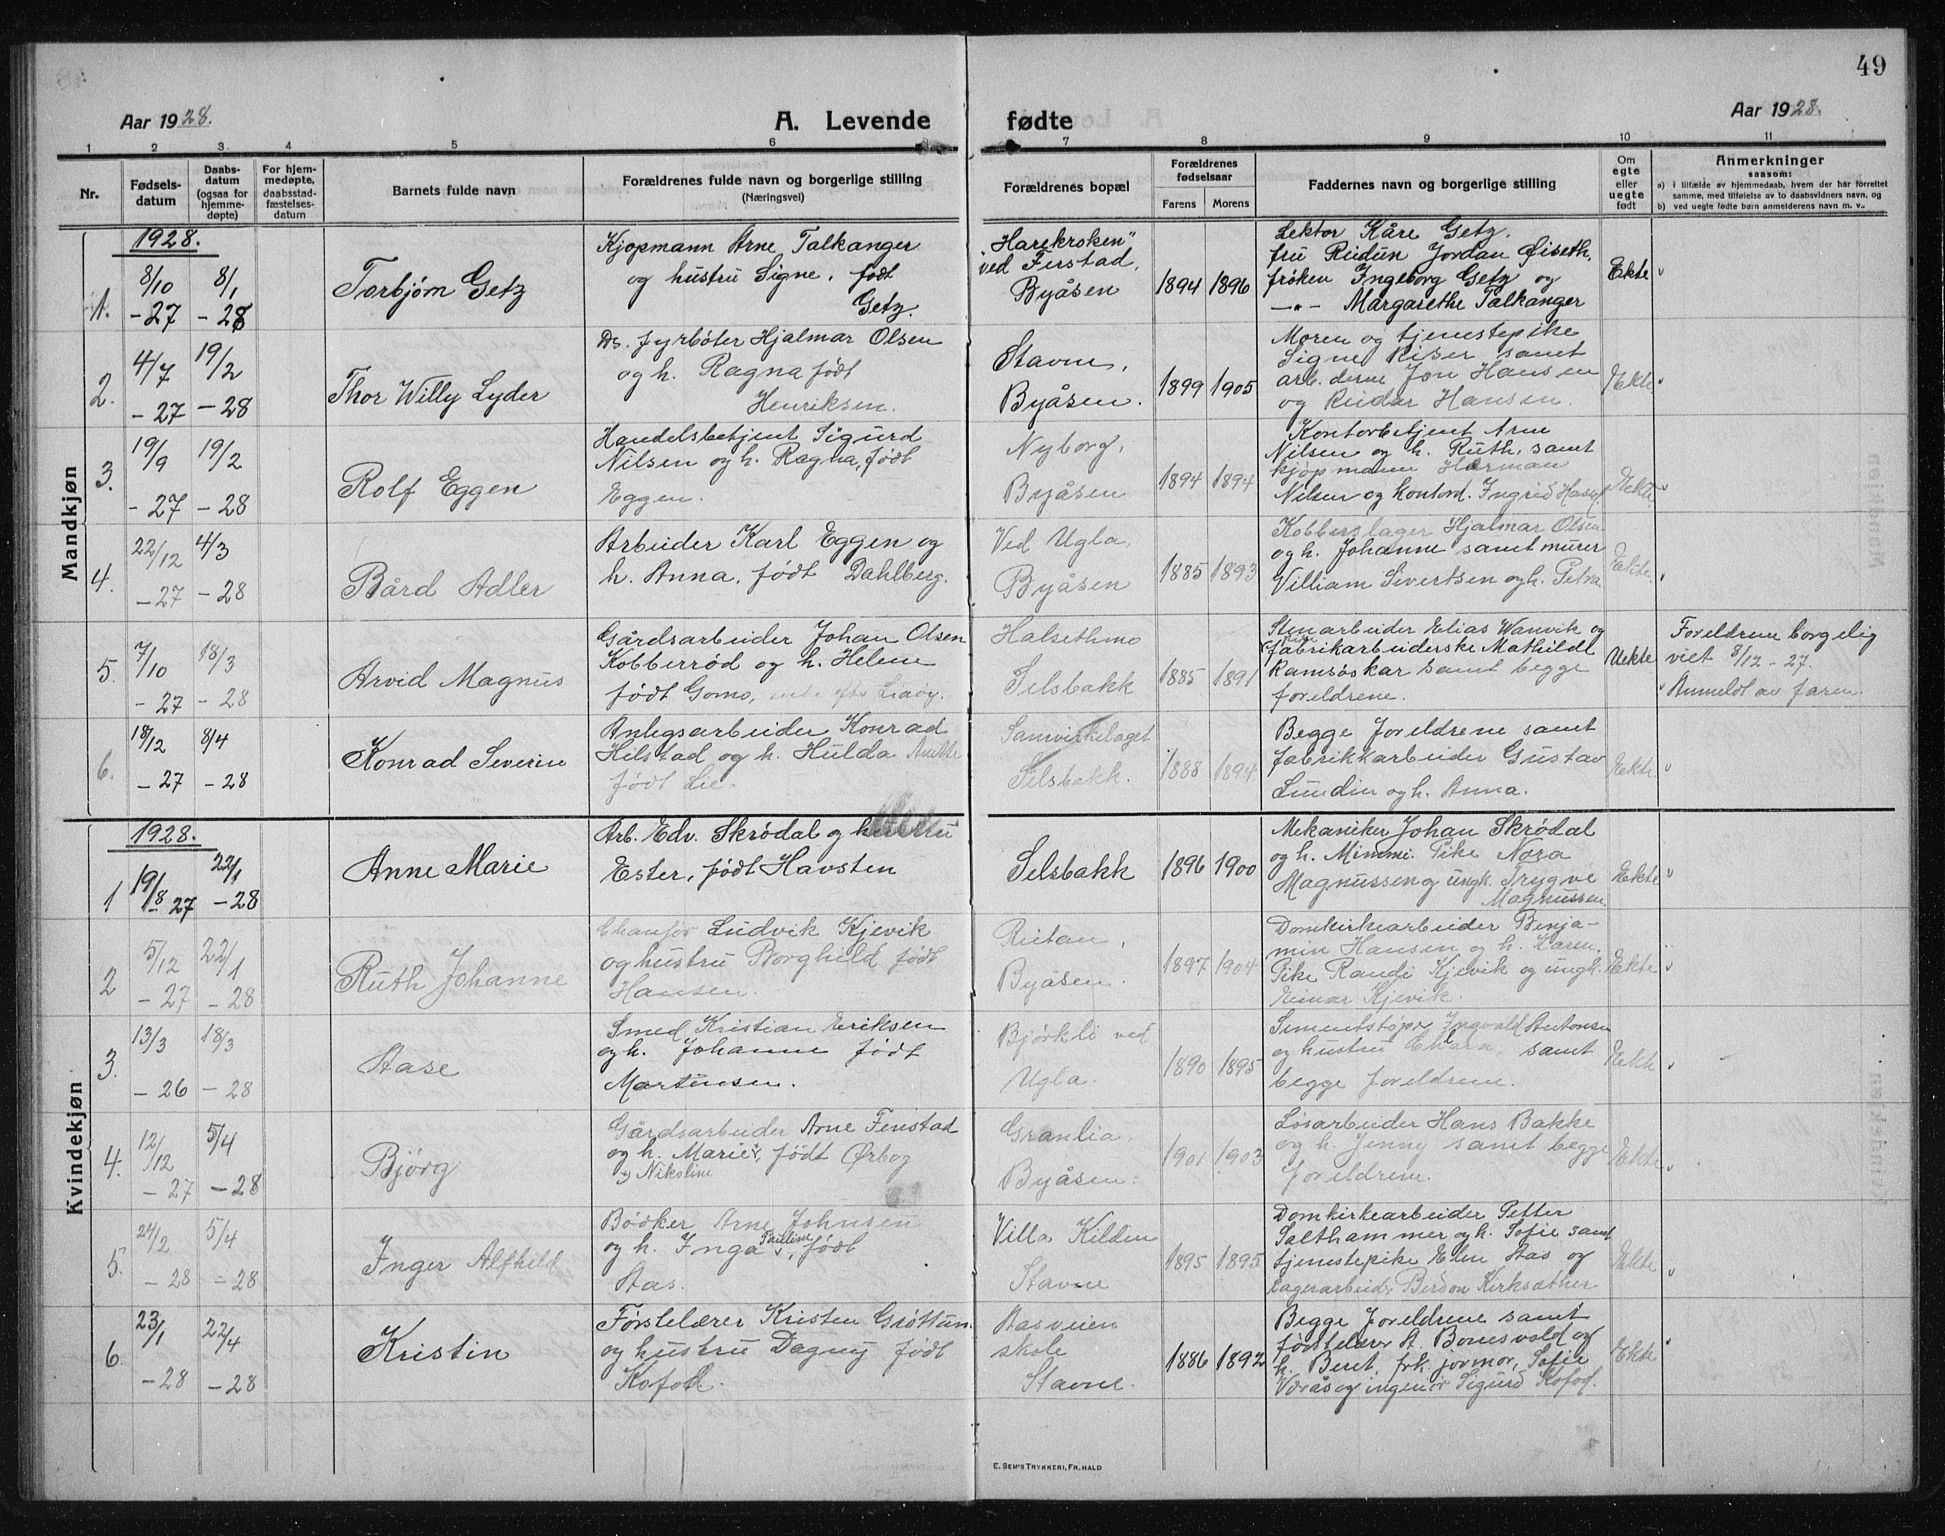 49
Aar 1928.
A. Levende
fødte
Aar 1928.
1 2 3 4 5 6 7 8 9 10 11
Nr.
Fødsels-
datum
Daabs-
datum
(ogsaa for
hjemme-
døpte)
For hjem-
medøpte,
daabsstad-
fæstelses-
datum
Barnets fulde navn
Forældrenes fulde navn og borgerlige stilling
(Næringsvei)
Forældrenes bopæl
Forældrenes
fødselsaar
Farens Morens
Faddernes navn og borgerlige stilling
Om
egte
eller
uegte
født
Anmerkninger
saasom:
a) i tilfælde av hjemmedaab, hvem der har forrettet
samme, med tilføielse av to daabsvidners navn, og
b) ved uegte fødte barn anmelderens navn m. v..
Mandkjøn
1928.
1.
8/10
-27
8/1
-28
Torbjørn Getz
Kjøpmann Arne Falkanger
og hustru Signe, født
Getz.
"Harekroken"
ved Ferstad,
Byåsen
1894 1896
Lektor Kåre Getz.
fru Reidun Jordan Øiseth,
frøken Ingeborg Getz og
—"— Margarethe Falkanger
Ekte
2.
4/7
-27
19/2
-28
Thor Willy Lyder
Ds. fyrbøter Hjalmar Olsen
og h. Ragna født
Henriksen.
Stavne,
Byåsen.
1899 1905
Moren og tjenestepike
Signe Riser samt
arb.derne Jon Hansen
og Reidar Hansen.
Ekte
3.
19/9
-27
19/2
-28
Rolf Eggen
Handelsbetjent Sigurd
Nilsen og h. Ragna, født
Eggen.
Nyborg,
Byåsen
1894 1894
Kontorbetjent Arne
Nilsen og h. Ruth, samt
kjøpmann Herman
Nilsen og kontord. Ingrid
Ekte
4.
22/12
-27
4/3
-28
Bård Adler
Arbeider Karl Eggen og
h. Anna, født Dahlberg.
Ved Ugla,
Byåsen
1885 1893
Kobberslager Hjalmar Olsen
og h. Johanne samt murer
Villiam Sivertsen og h. Petra
Ekte
5.
7/10
-27
18/3
-28
Arvid Magnus
Gårdsarbeider Johan Olsen
Kobberrød og h. Helene
født Gomo,
Halsethmo
Selsbakk
1885 1891
Stenarbeider Elias Wanvik og
fabrikarbeiderske Mathilde
Ramsøskar samt begge
foreldrene.
Uekte
Foreldrene borgelig
viet 8/12-27.
Anmeldt av faren.
6.
18/12
-27
8/4
-28
Konrad Severin
Anlegsarbeider Konrad
Hilstad og h. Hulda
født Lie.
Samvirkelaget
Selsbakk.
1888 1894
Begge foreldrene samt
fabrikkarbeider Gustav
Lundin og h. Anna.
Ekte
Kvindekjøn
1928.
1
19/8 27
22/1
-28
Anne Marie
Arb. Edv. Skrødal og hustru
Ester, født Havsten
Selsbakk
1896 1900
Mekaniker Johan Skrødal
og h. Mimmi. Pike Nora
Magnussen og ungk. Trygve
Magnussen
Ekte
2
5/12
-27
22/1
-28
Ruth Johanne
Chaufør Ludvik Kjevik
og hustru Borghild født
Hansen.
Reitan,
Byåsen.
1897 1904
Domkirkearbeider Benja-
min Hansen og h. Karen.
Pike Randi Kjevik og ungk.
Einar Kjevik.
Ekte
3.
13/3
-26
18/3
-28
Aase
Smed Kristian Eriksen
og h. Johanne født
Martinsen.
Bjørkli ved
Ugla.
1890 1895
Sementstøper Ingvald Antonsen
og hustru Chlara, samt
begge foreldrene.
Ekte
4.
12/12
-27
5/4
-28
Bjørg
Gårdsarbeider Arne Finstad
og h. Marie, født Ørbog
Nikoline
Granlia,
Byåsen.
1901 1903
Løsarbeider Hans Bakke
og h. Jenny samt begge
foreldrene.
Ekte
5.
24/2
-28
5/4
-28
Inger Alfhild
Bødker Arne Johnsen
og h. Inga Pauline, født
Aas.
Villa Kilden
Stavne
1895 1895
Domkirkearbeider Petter
Salthammer og h. Sofie samt
tjenestepike Elen Aas og
lagerarbeider Kirksæther
Ekte
6.
23/1
-28
22/4
-28
Kristin
Førstelærer Kristen Grøttun
og hustru Dagny født
Kofod.
Aasveien
skole
Stavne.
1886 1892
Begge foreldrene samt
førstelærer A. Bonesvold og
h. Beret, frk. jormor, Sofie
Værås og ingeniør Sigurd Kofod.
Ekte
E. Sem's Trykkeri, Fr.hald